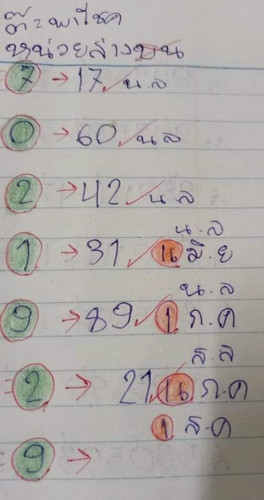 ตี๋=พาโชค
หน่วยล่างบน
7 → 17 น.ล
0 → 60 น.ล
2 → 42 น.ล
น.ล
1 → 31 16 มิ.ย
น.ล
9 → 89 1 ก.ค
ส.ล
= 2 → 21 16 ก.ค
1 ส.ค
= 9 →